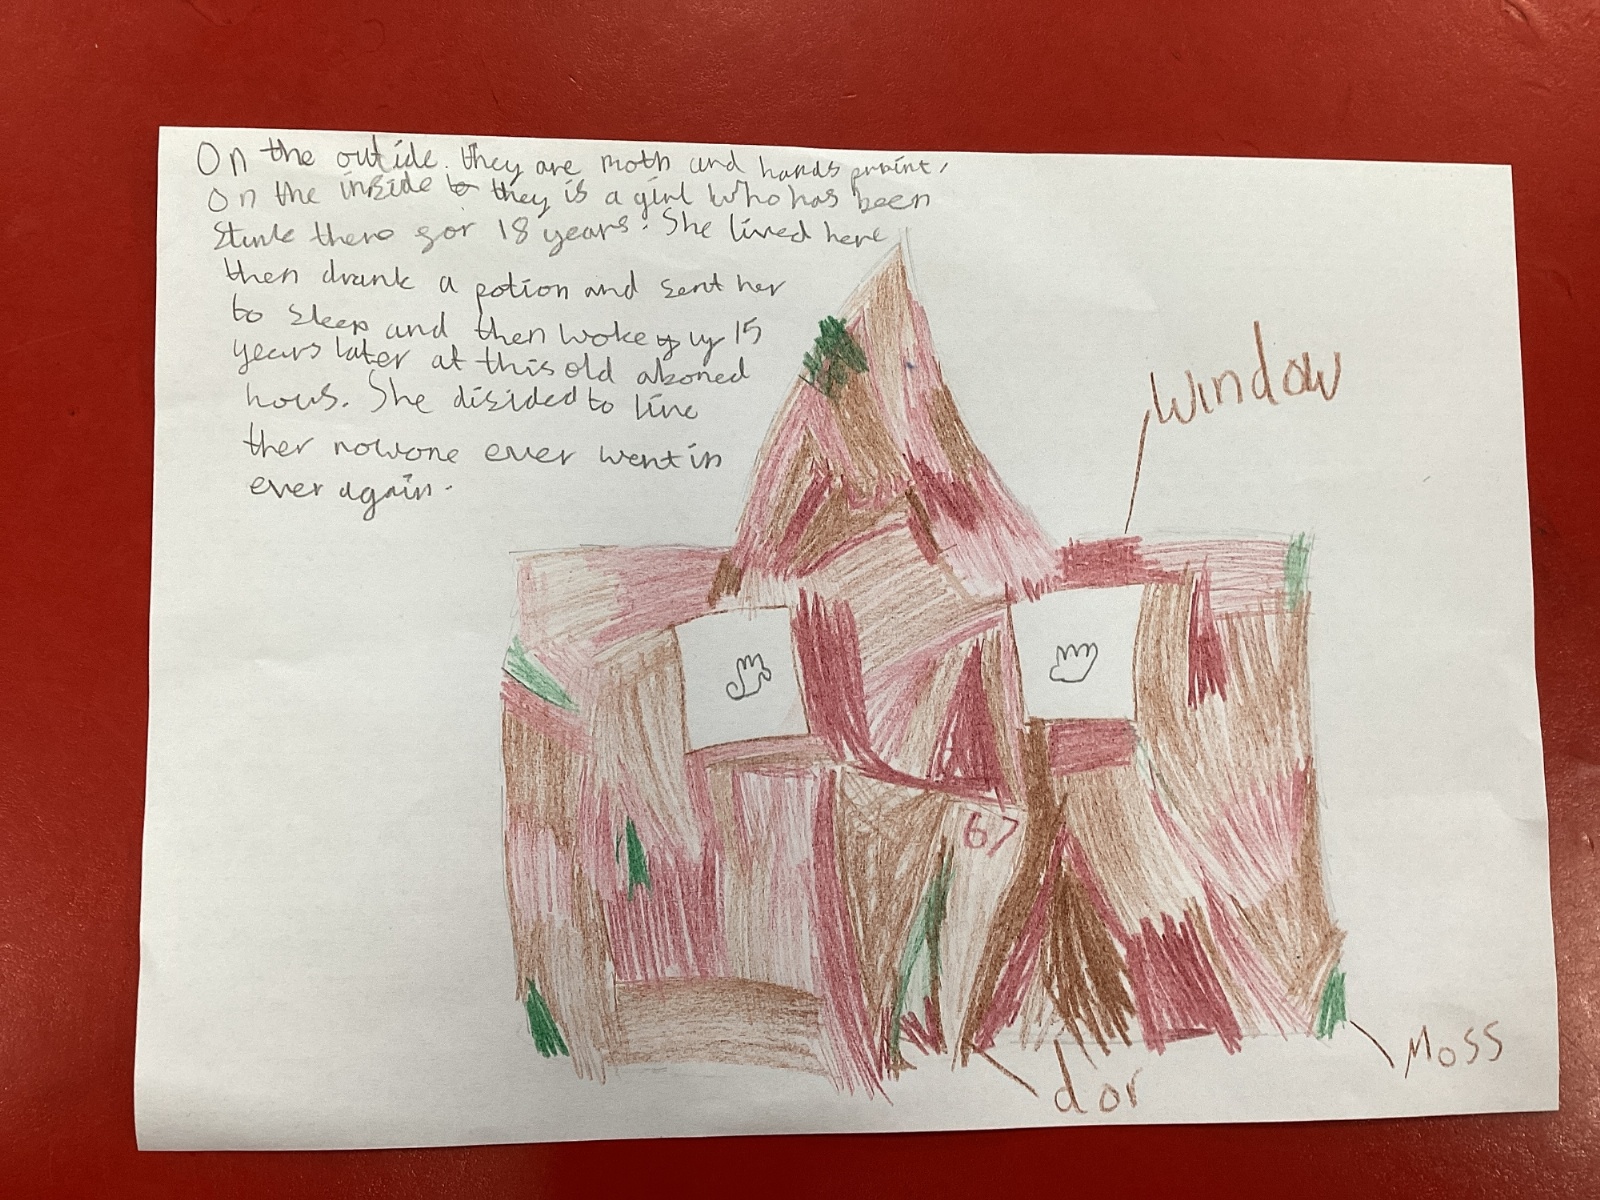 On the outide. they are moth and hands praint,
On the inside to they is a girl Who has been
Stuck there for 18 years. She lived here
then drank a potion and sent her
to sleep and then woke y up 15
years later at this old aboned
hous. She disided to live
ther nowone ever went in
ever again.
Window
67
Moss
dor